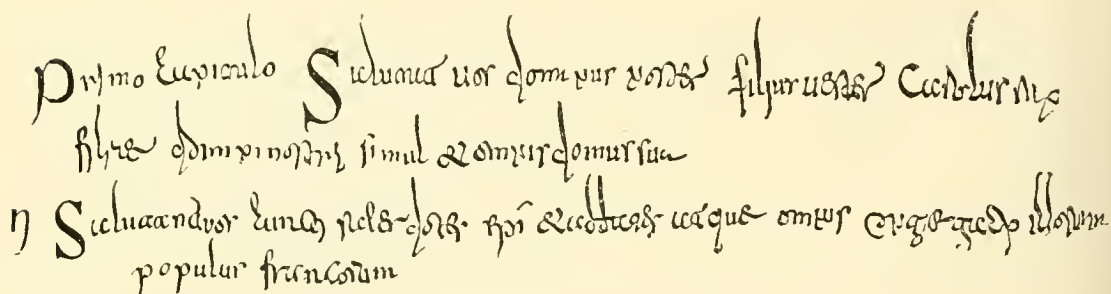 Primo capitulo Salutat uos domnus noster filius uester Carolus rex
filiae domni nostri simul et omnis domus sua
II Salutant uos cuncti sacerdotes epi et abbates atque omnis congregatio illorum
populus francorum